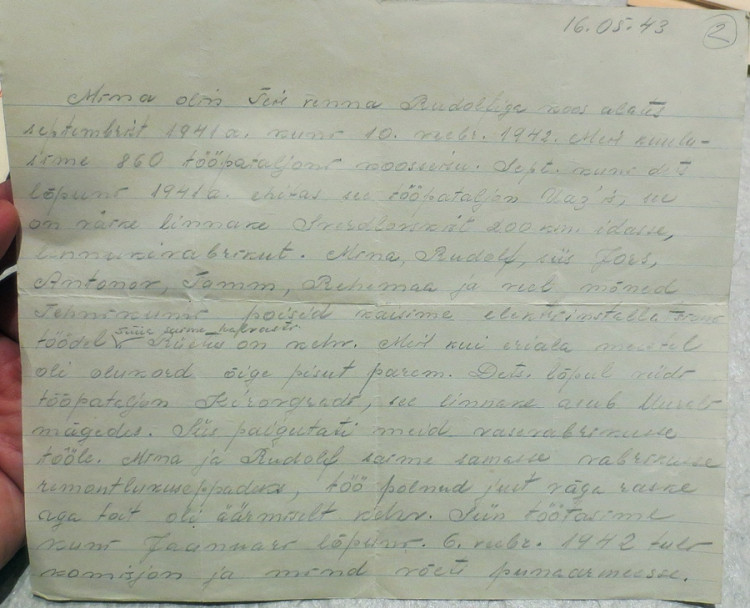 16.05.43
2
Mina olin Teie venna Rudolfiga koos alates
septembrist 1941 a. kuni 10. veebr. 1942. Meil kuulu-
sime 860 tööpataljoni koosseisu. Sept. kuni det.
lõpuni 1941 a. ehitas see tööpataljon see
on väike linnake Sverdlovskist 200 km. idasse,
vabrikut. Mina, Rudolf, siis Joes,
Antonov, Tamm, Rehemaa ja veel mõned
Tehnikumi poisid käisime elektriinstallatsiooni
töödel siin saime kehvasti on kehv. Meil kui eriala meestel
oli olukord õige pisut parem. Dets. lõpul viidi
tööpataljon Kirovgradi, see linnake asub Uurali
mägedes. Siis paigutati meid vasevabrikusse
tööle. Mina ja Rudolf saime samasse vabrikusse
remontlukkseppadeks, töö polnud just väga raske
aga toit oli äärmiselt kehv. Siin töötasime
kuni Jaanuari lõpuni. 6. veebr. 1942 tuli
komisjon ja mind võeti punaarmeesse.